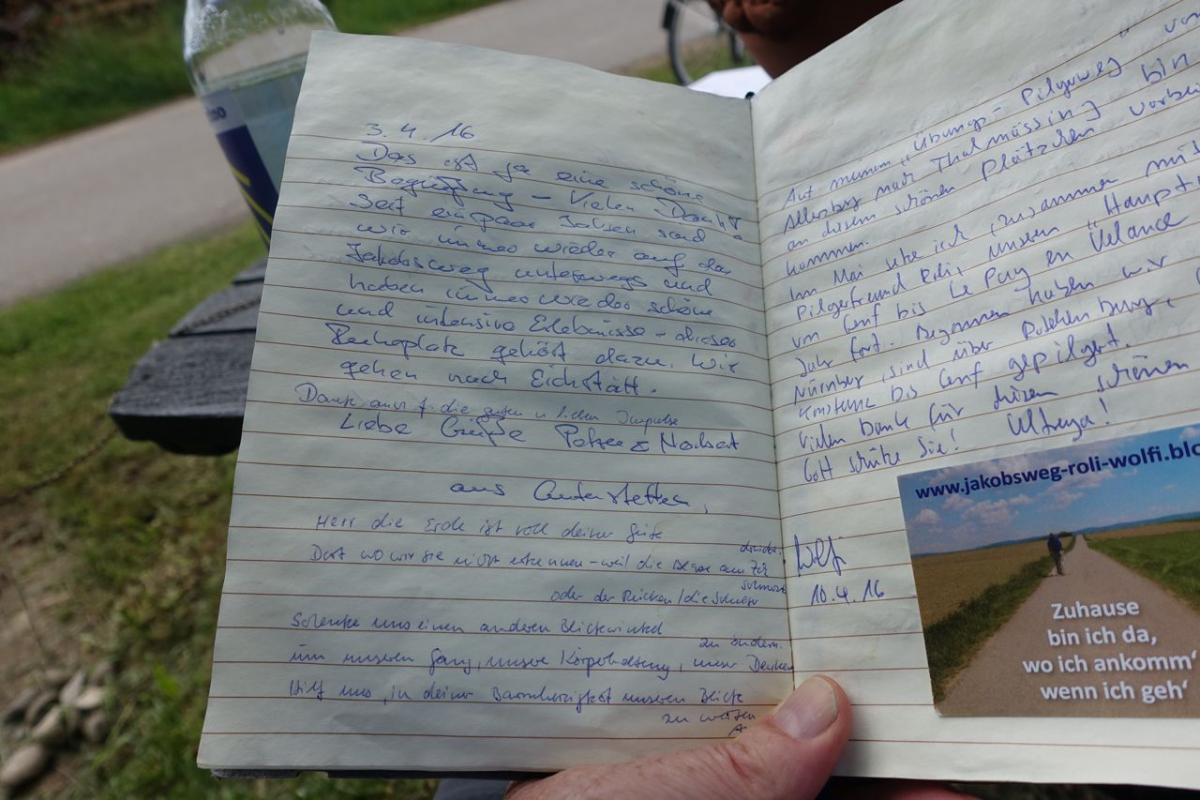 3.4.16
Das ist ja eine schöne
Begrüßung – Vielen Dank!
Seit ein paar Jahren sind
wir immer wieder auf dem
Jakobsweg unterwegs und
haben immer wieder schöne
und intensive Erlebnisse – dieser
Rastplatz gehört dazu. Wir
gehen nach Eichstätt.
Danke auch f. die guten u. Impulse
Liebe Grüße & Norbert
aus
Herr die Erde ist voll deiner Güte
Dort wo wir sie nicht erkennen – weil die am
oder der Rücken / die
Schenke uns einen anderen Blickwinkel
um unseren Gang, unsere Körperhaltung, unser Denken
zu ändern.
Hilf uns, in deiner Barmherzigkeit unseren Blick
zu weiten
Auf meinem „Übungs-Pilgerweg" von
Allersberg nach Thalmässing bin
an diesem schönen Plätzchen vorbei
kommen.
Im Mai gehe ich, zusammen mit
Pilgerfreund Roli, unseren "Haupt
von Genf bis Le Puy en Velance
Jahr fort. Begonnen haben wir
Nürnberg, sind über Rothenburg,
Konstanz bis Genf gepilgert.
Vielen Dank für diesen schönen
Gott schütze Sie! Ultreya!
Wolfi
10.4.16
www.jakobsweg-roli-wolfi.blo
Zuhause
bin ich da,
wo ich ankomm'
wenn ich geh'